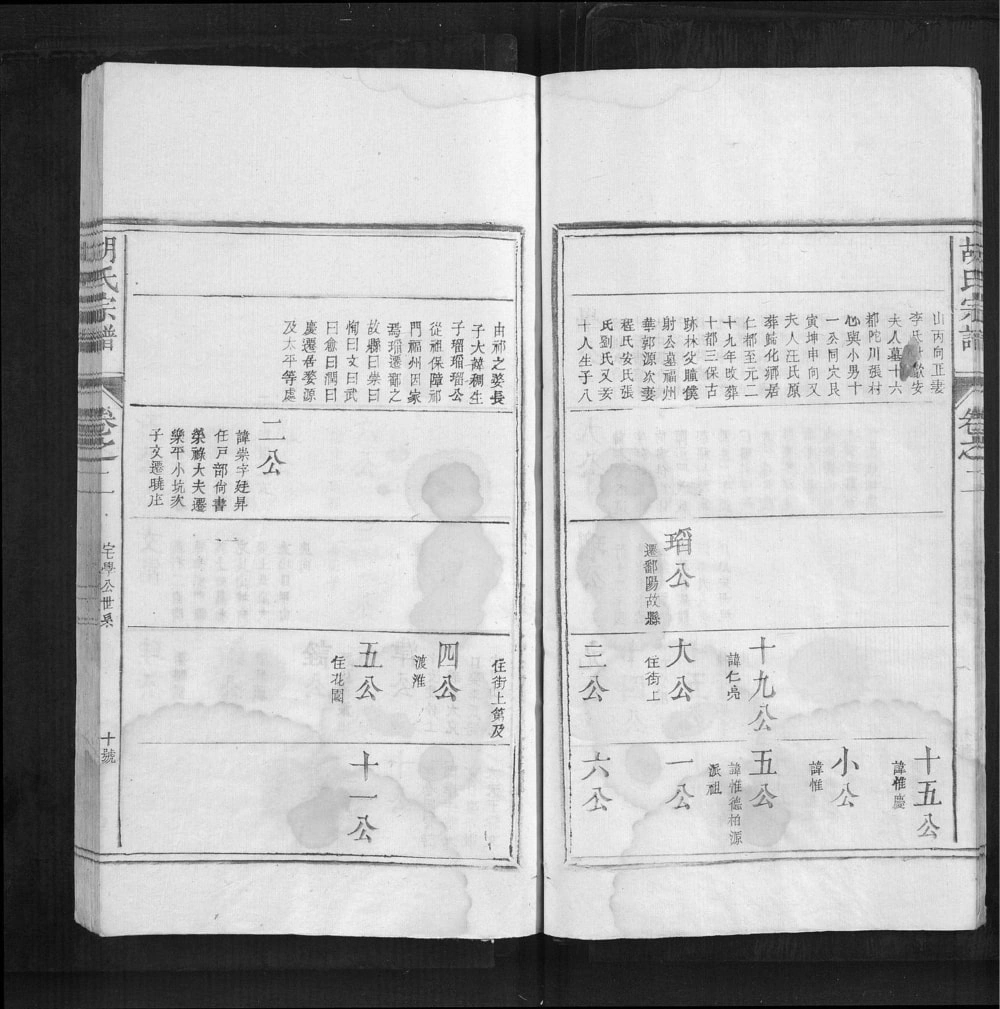 胡氏宗譜
卷之二
山丙向正妻
李氏
夫人墓十六
都陀川張村
心與小男十
一公同穴艮
寅坤申向又
夫人汪氏原
葬歸化鄉居
仁都至元二
十九年改葬
十都三保古
跡林

射公墓福州
華郭源次妻
程氏安氏張
氏劉氏又妾
十人生子八
瑫公
遷鄱陽故縣
十九公
諱仁亮
大公
住街上
三公
十五公
諱惟慶
小公
諱惟
五公
諱惟德柏源
派祖
一公
六公
由祁之婺長
子大諱稠生
子瑠瑫瑠公
從祖保障祁
門福州因家
焉瑫遷鄱之
故縣曰崇曰
恂曰文曰武
曰倉曰潤曰
慶遷居婺源
及太平等處
二公
諱崇字廷昇
任戸部尚書
榮祿大夫遷
樂平小坑次
子文遷曉庄
住街上第及
四公
渡淮
五公
住花園
十一公
胡氏宗譜
卷之二
宅學公世系
十號